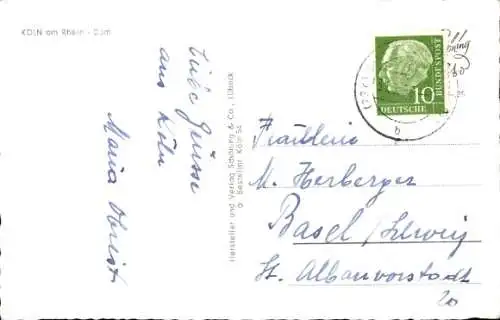 KÖLN am Rhein - Dom
Liebe Grüsse
aus Köln
Maria Obrist
Hersteller und Verlag Schöning & Co., Lübeck
Bestellnr. Köln 54
10
DEUTSCHE
BUNDESPOST
b
Fräulein
M. Herberger
Basel / Schweiz
St. Albanvorstadt
20